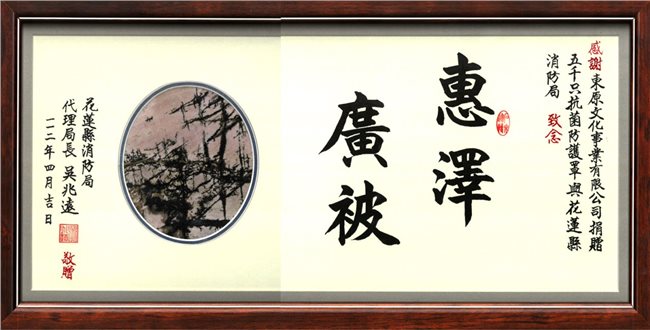 感謝東原文化事業有限公司捐贈
五千只抗菌防護罩與花蓮縣
消防局 致念
惠澤
廣被
花蓮縣消防局
代理局長 吳兆遠
一一二年四月吉日
敬贈